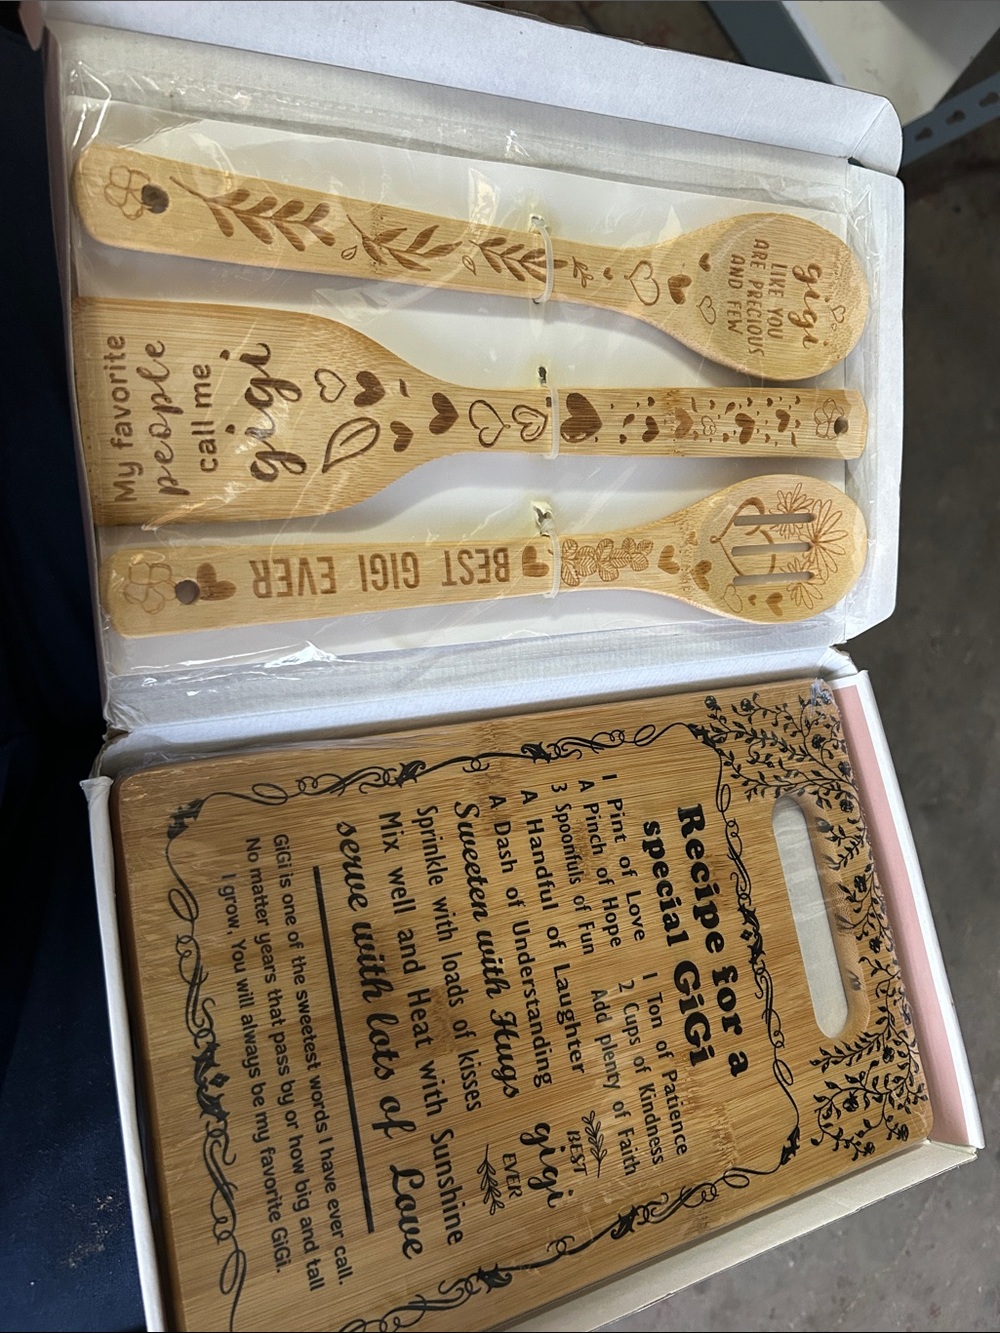 gigi
LIKE YOU
ARE PRECIOUS
AND FEW
My favorite
people
call me
gigi
BEST GIGI EVER
Recipe for a
special GiGi
1 Pint of Love 1 Ton of Patience
A Pinch of Hope 2 Cups of Kindness
3 Spoonfuls of Fun Add plenty of Faith
A Handful of Laughter
A Dash of Understanding
Sweeten with Hugs
Sprinkle with loads of kisses
Mix well and Heat with Sunshine
serve with lots of Love
BEST
gigi
EVER
GiGi is one of the sweetest words I have ever call.
No matter years that pass by or how big and tall
I grow. You will always be my favorite GiGi.